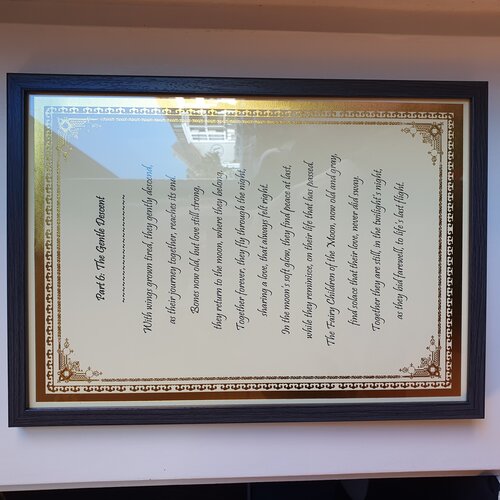 Part 6: The Gentle Descent
~~~~~~~~~~~~~~~~~~~~
With wings grown tired, they gently descend,
as their journey together, reaches its end.
Bones now old, but love still strong,
they return to the moon, where they belong.
Together forever, they fly through the night,
sharing a love, that always felt right.
In the moon's soft glow, they find peace at last,
while they reminisce, on their life that has passed.
The Fairy Children of the Moon, now old and gray,
find solace that their love, never did sway.
Together they are still, in the twilight's night,
as they bid farewell, to life's last flight.